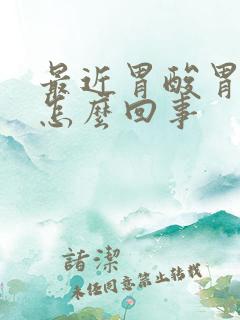 最近胃酸胃
怎麼回事
諸潔
未任同意禁止转载